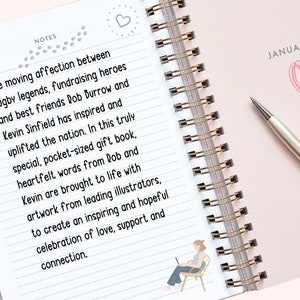 NOTES
e moving affection between
ugby legends, fundraising heroes
and best friends Rob Burrow and
Kevin Sinfield has inspired and
uplifted the nation. In this truly
special, pocket-sized gift book,
heartfelt words from Rob and
Kevin are brought to life with
artwork from leading illustrators,
to create an inspiring and hopeful
celebration of love, support and
connection.
JANUA